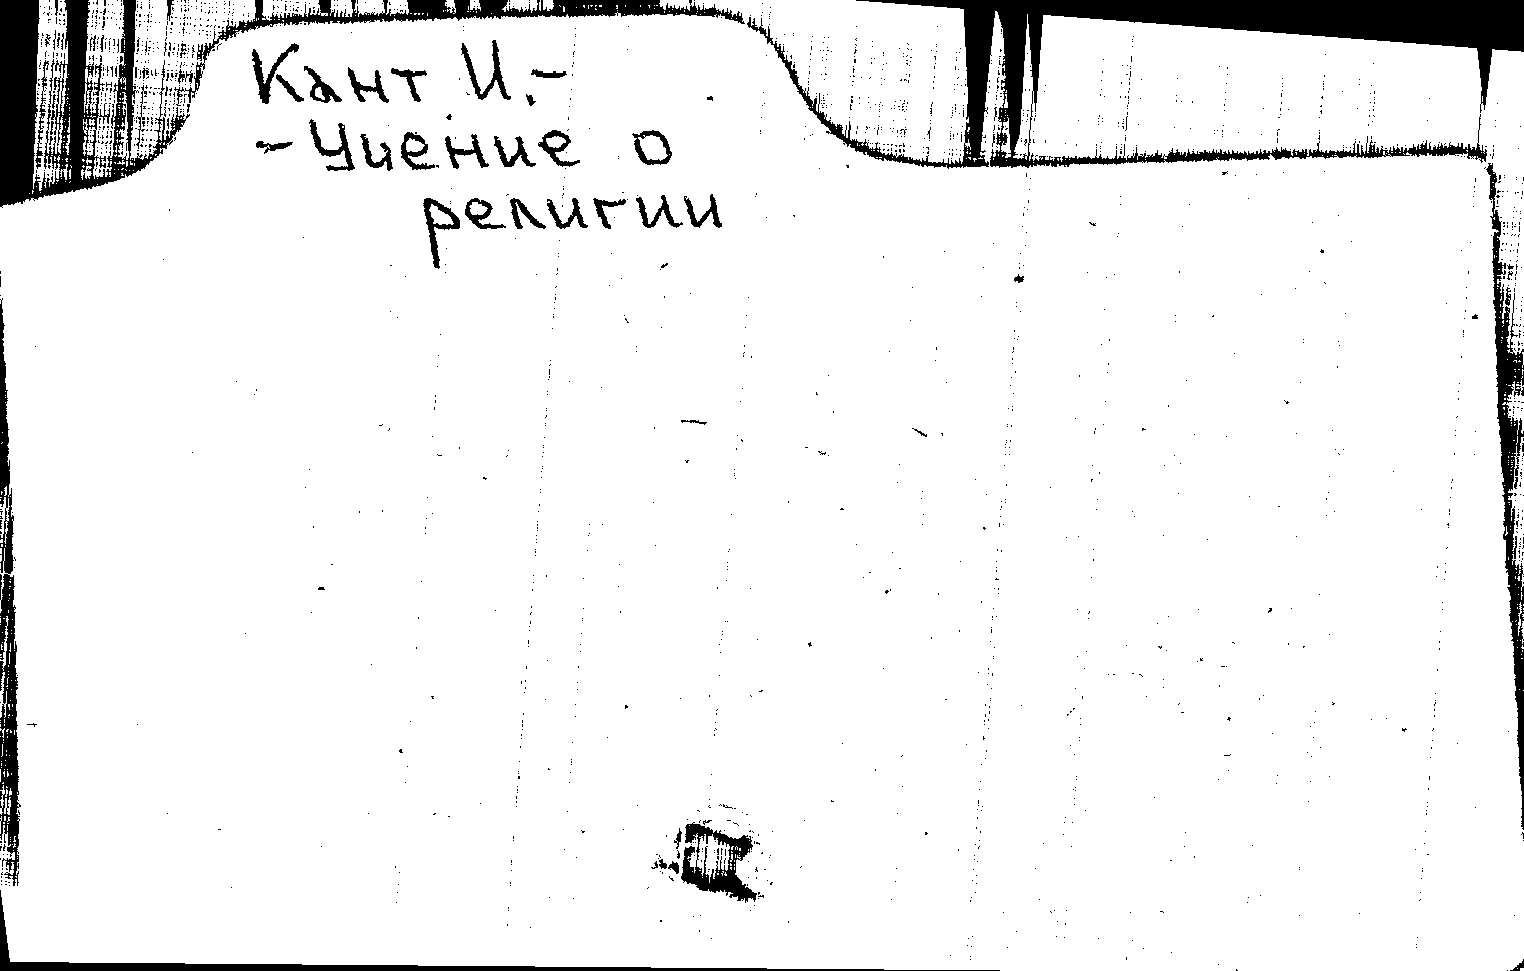 Кант И.-
-Учение о
религии